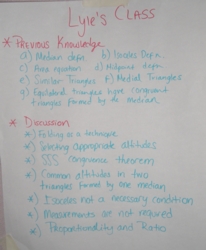 Lyle's Class
* Previous Knowledge
a) Median defn b) Isosceles Defn.
c) Area equation d) Midpoint defn.
e) Similar Triangles f) Medial Triangles
g) Equilateral triangles have congruent
triangles formed by the median
* Discussion
*) Folding as a technique
*) Selecting appropriate altitudes
*) SSS congruence theorem
*) Common altitudes in two
triangles formed by one median
*) Isosceles not a necessary condition
*) Measurements are not required
*) Proportionality and Ratio